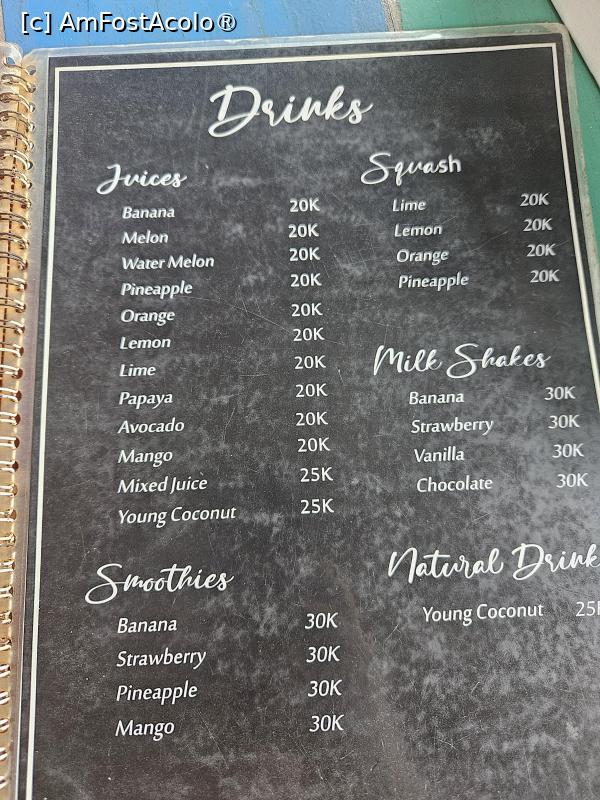 [c] AmFostAcolo®
Drinks
Juices
Banana 20K
Melon 20K
Water Melon 20K
Pineapple 20K
Orange 20K
Lemon 20K
Lime 20K
Papaya 20K
Avocado 20K
Mango 20K
Mixed Juice 25K
Young Coconut 25K
Smoothies
Banana 30K
Strawberry 30K
Pineapple 30K
Mango 30K
Squash
Lime 20K
Lemon 20K
Orange 20K
Pineapple 20K
Milk Shakes
Banana 30K
Strawberry 30K
Vanilla 30K
Chocolate 30K
Natural Drink
Young Coconut 25K